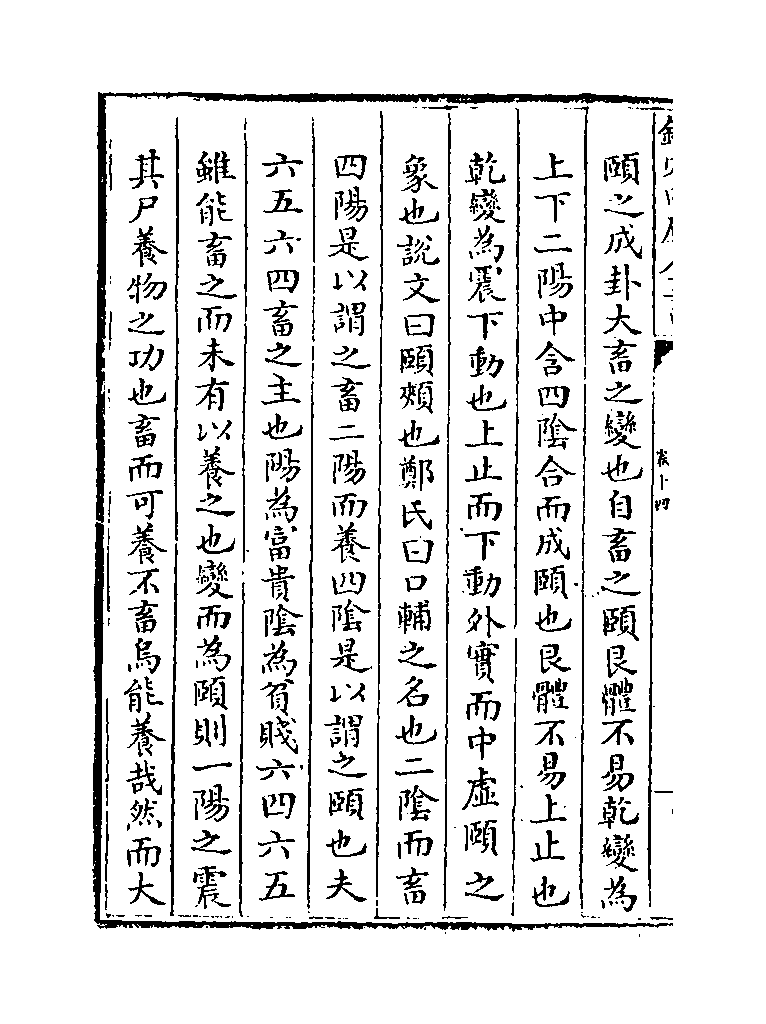 頤之成卦大畜之變也自畜之頤艮體不易乾變為
上下二陽中含四陰合而成頤也艮體不易上止也
乾變為震下動也上止而下動外實而中虛頤之
象也說文曰頤頰也鄭氏曰口輔之名也二陰而畜
四陽是以謂之畜二陽而養四陰是以謂之頤也夫
六五六四畜之主也陽為富貴陰為貧賤六四六五
雖能畜之而未有以養之也變而為頤則一陽之震
其尸養物之功也畜而可養不畜烏能養哉然而大
卷十四